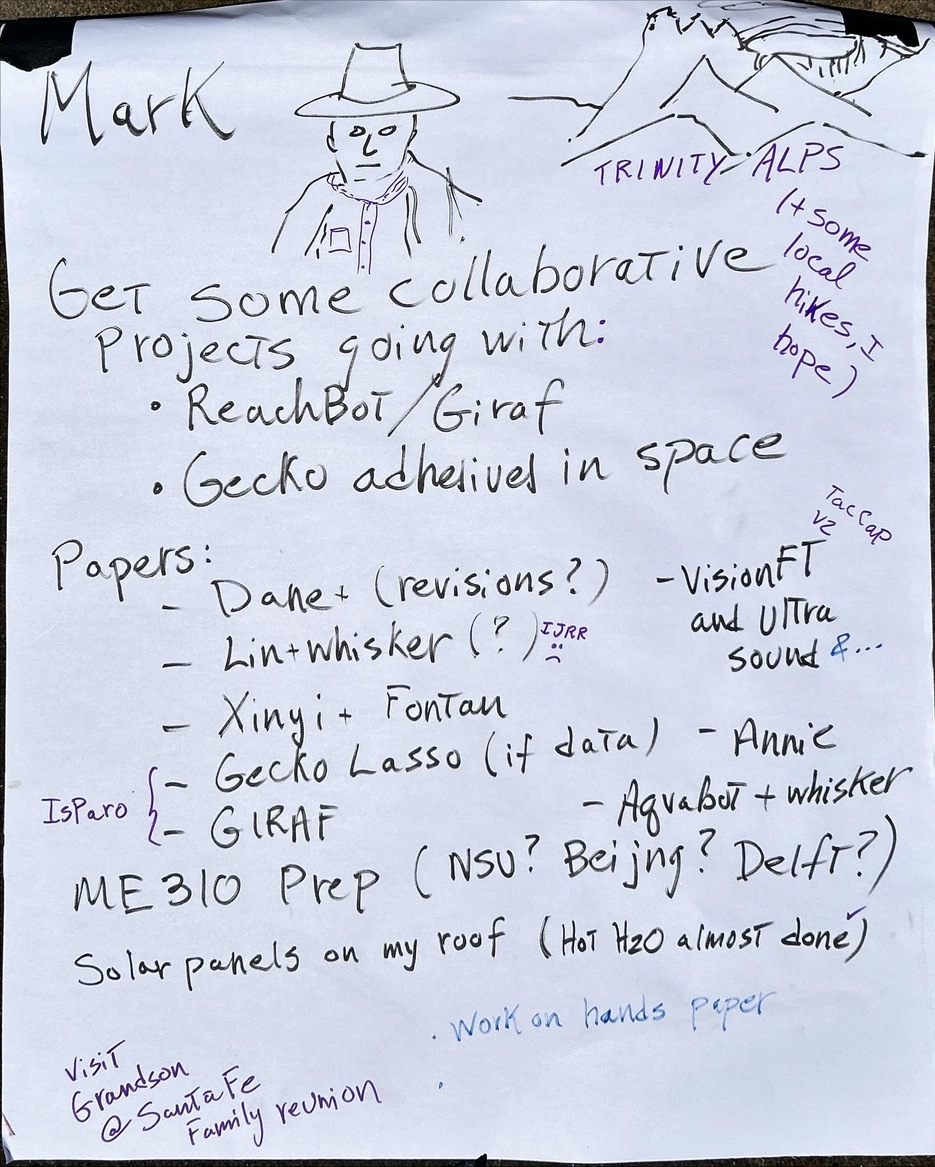 Mark
TRINITY ALPS
(+ some
local
hikes, I
hope)
Get some collaborative
Projects going with:
• ReachBot/Giraf
• Gecko adhesives in space
Papers:
- Dane+ (revisions?)
- Lin+whisker (?) IJRR
- Xinyi + Fontan
- Gecko Lasso (if data)
- GIRAF
IsParo
TacCap
V2
- VisionFT
and Ultra
sound &...
- Annie
- Aquabot + whisker
ME310 Prep (NSU? Beijng? Delft?)
Solar panels on my roof (Hot H2O almost done ✓)
. Work on hands paper
.
Visit
Grandson
@ Santa Fe
Family reunion